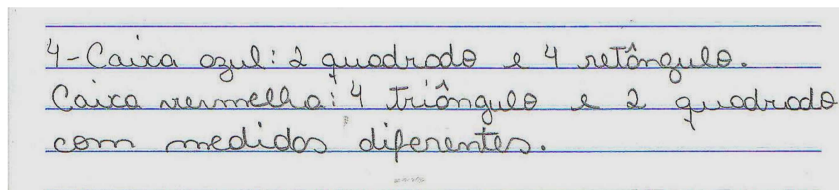 4-Caixa azul: 2 quadrado e 4 retângulo.
Caixa vermelha: 4 triângulo e 2 quadrado
com medidas diferentes.